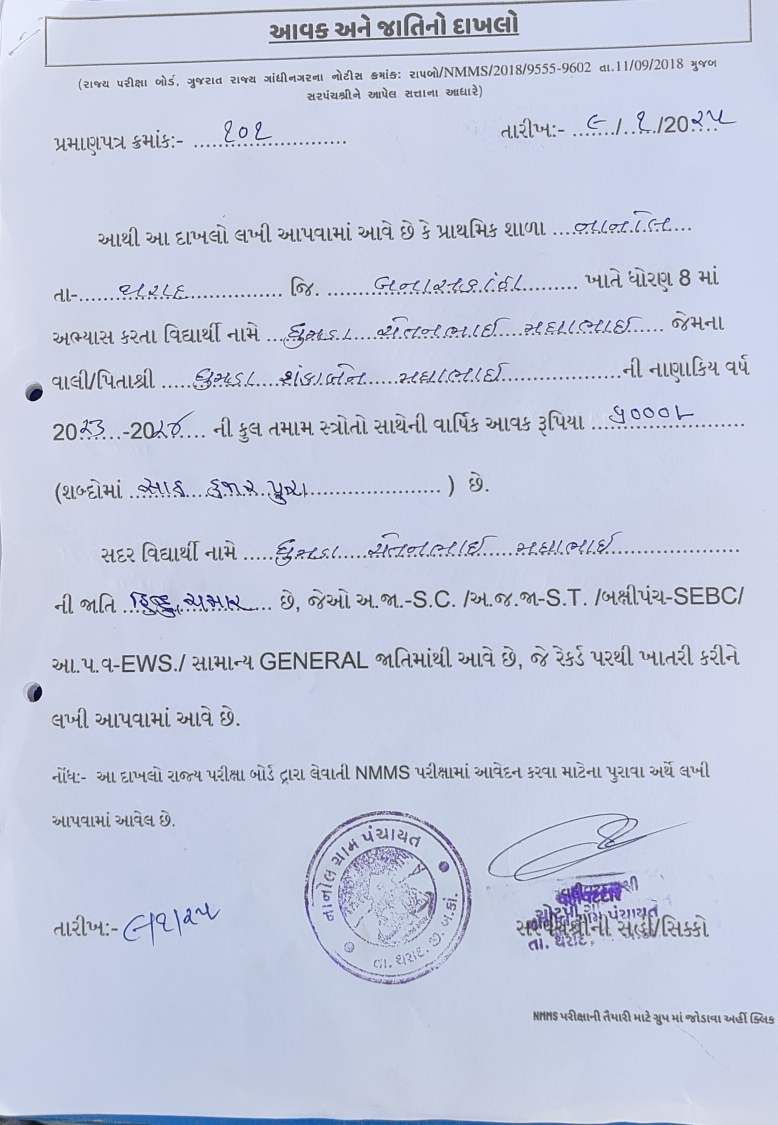 આવક અને જાતિનો દાખલો
(રાજ્ય પરીક્ષા બોર્ડ, ગુજરાત રાજ્ય ગાંધીનગરના નોટીસ ક્રમાંક: રાપબો/NMMS/2018/9555-9602 તા.11/09/2018 મુજબ
સરપંચશ્રીને આપેલ સત્તાના આધારે)
પ્રમાણપત્ર ક્રમાંક:- ૧૦૧ તારીખ:- ૯/૧/20૨૫
આથી આ દાખલો લખી આપવામાં આવે છે કે પ્રાથમિક શાળા નાનોલ
તા- થરાદ જિ. બનાસકાંઠા ખાતે ધોરણ 8 માં
અભ્યાસ કરતા વિદ્યાર્થી નામે ધુમડા ચેતનભાઈ મઘાભાઈ જેમના
વાલી/પિતાશ્રી ધુમડા મઘાભાઈ ની નાણાકિય વર્ષ
20૨૩-20૨૪ ની કુલ તમામ સ્ત્રોતો સાથેની વાર્ષિક આવક રૂપિયા
(શબ્દોમાં હજાર પુરા ) છે.
સદર વિદ્યાર્થી નામે ધુમડા ચેતનભાઈ મઘાભાઈ
ની જાતિ હિન્દુ ચમાર છે, જેઓ અ.જા.-S.C. /અ.જ.જા-S.T. /બક્ષીપંચ-SEBC/
આ.પ.વ-EWS./ સામાન્ય GENERAL જાતિમાંથી આવે છે, જે રેકર્ડ પરથી ખાતરી કરીને
લખી આપવામાં આવે છે.
નોંધ:- આ દાખલો રાજ્ય પરીક્ષા બોર્ડ દ્વારા લેવાતી NMMS પરીક્ષામાં આવેદન કરવા માટેના પુરાવા અર્થે લખી
આપવામાં આવેલ છે.
નાનોલ ગ્રામ પંચાયત
તા. થરાદ. જી. બ.કાં.
તારીખ:- ૯/૧/૨૫
ગ્રામ પંચાયત
સરપંચશ્રીની સહી/સિક્કો
તા. થરાદ.
NMMS પરીક્ષાની તૈયારી માટે ગ્રુપ માં જોડાવા અહીં ક્લિક